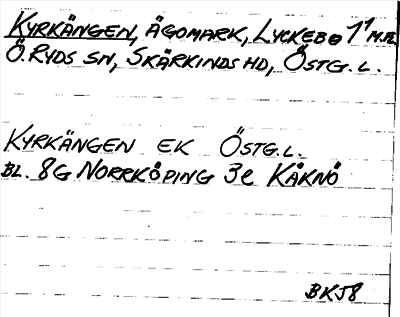 KYRKÄNGEN, ÄGOMARK, LYCKEBO 1¹ M.FL.
Ö. RYDS SN, SKÄRKINDS HD, ÖSTG. L.
KYRKÄNGEN EK ÖSTG. L.
BL. 8G NORRKÖPING 3e KÅKNÖ
BKJ8